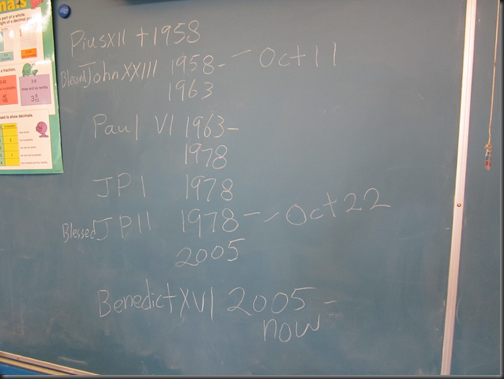 Pius XII + 1958
Blessed John XXIII 1958 - - Oct 11
1963
Paul VI 1963 -
1978
JP I 1978
Blessed JP II 1978 - - Oct 22
2005
Benedict XVI 2005 -
now